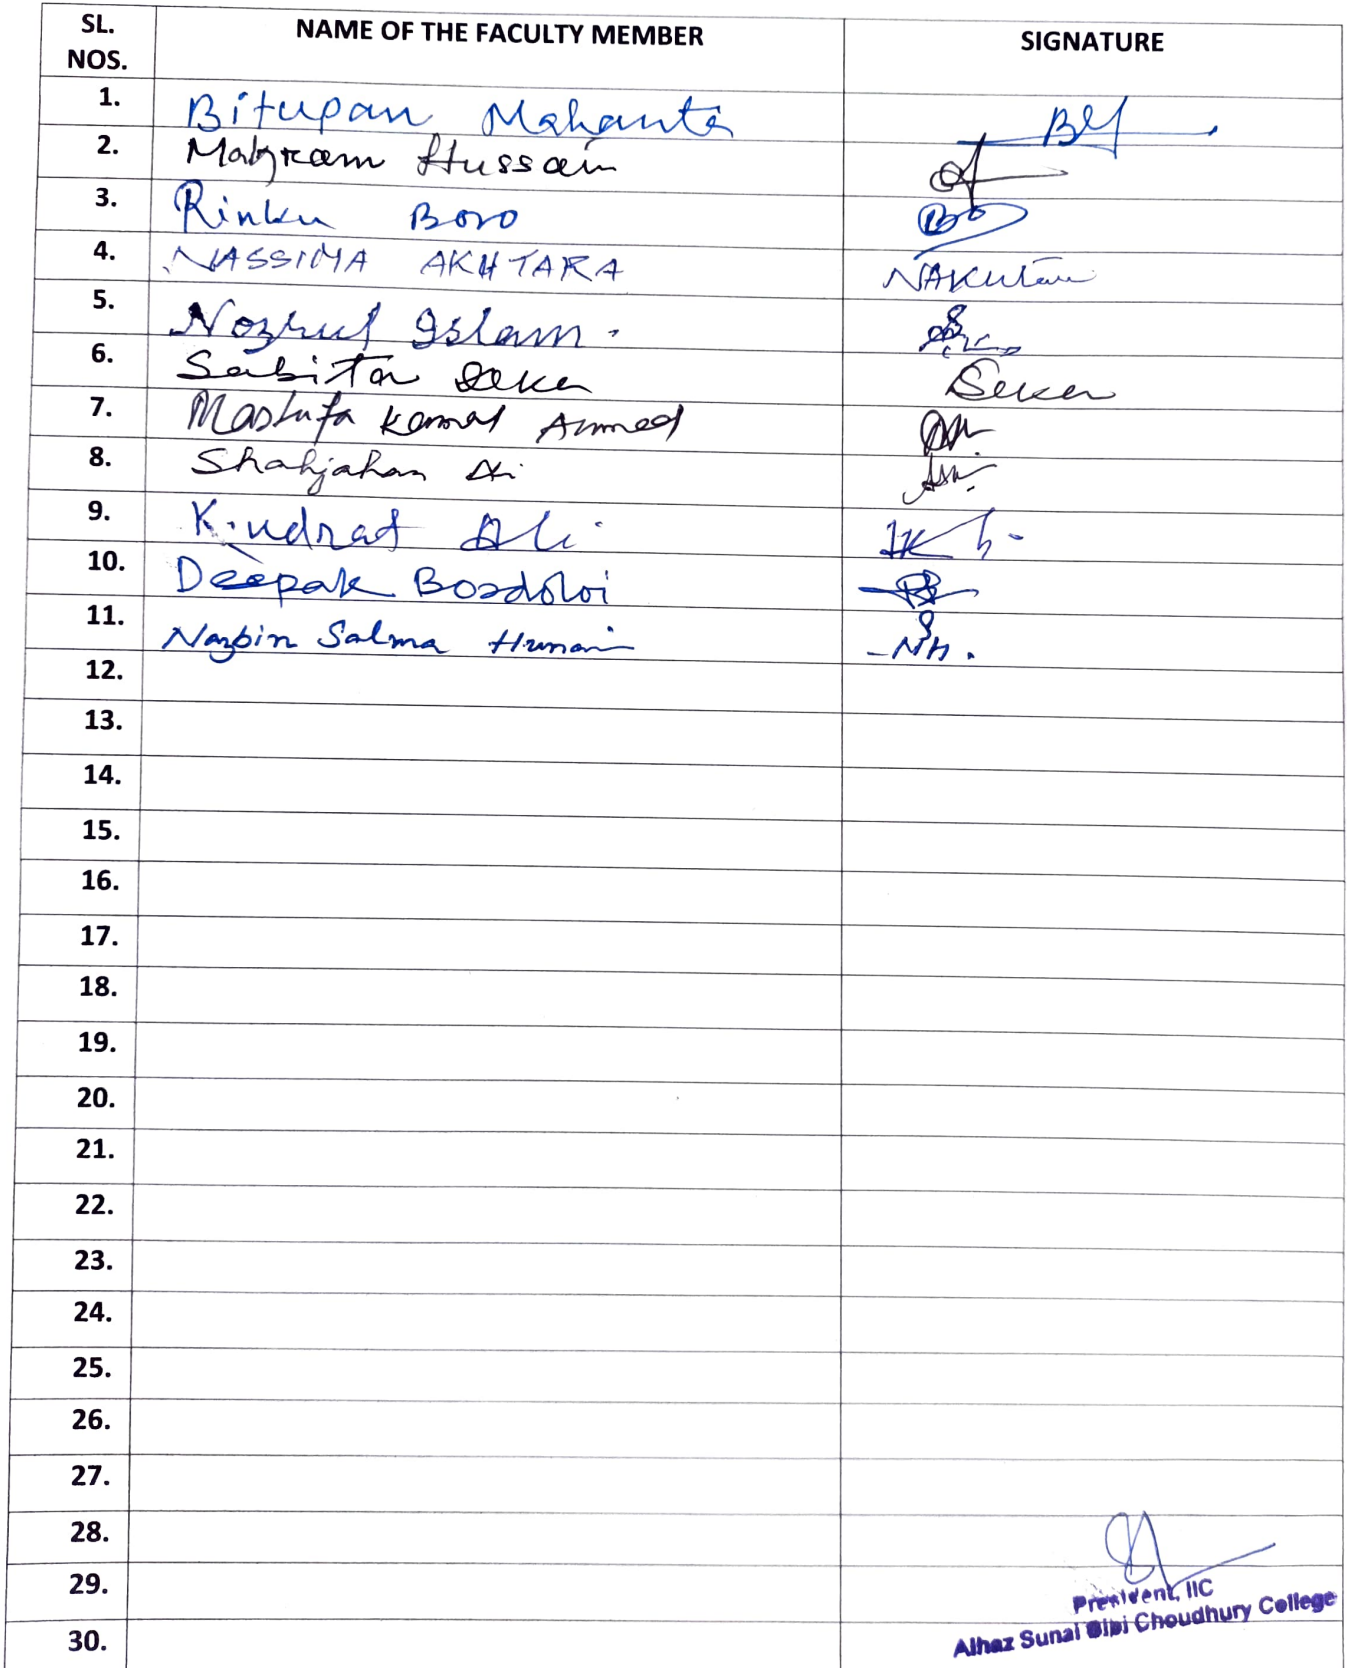 SL. NOS. NAME OF THE FACULTY MEMBER SIGNATURE
1. Bitupan Mahanta
2. Hussain
3. Rinku Boro
4. NASSIMA AKHTARA
5. Nozrul Islam.
6. Sabita Deka
7. Mastufa Kamal Ahmed
8. Shahjahan Ali
9. Kudrat Ali
10. Deepak Bordoloi
11. Salma
12.
13.
14.
15.
16.
17.
18.
19.
20.
21.
22.
23.
24.
25.
26.
27.
28.
29.
30.
President, IIC
Alhaz Sunai Bibi Choudhury College